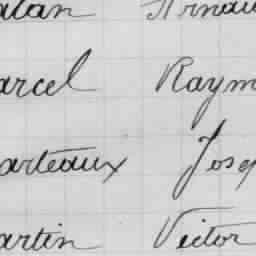 alan Arnau
arcel Raym
arteaux Josep
artin Victor